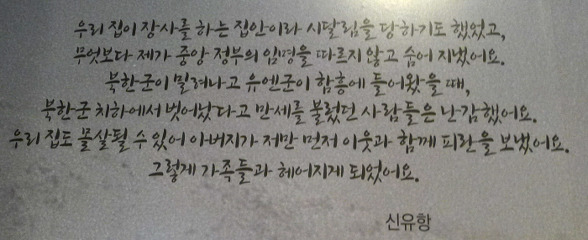 우리 집이 장사를 하는 집안이라 시달림을 당하기도 했었고,
무엇보다 제가 중앙 정부의 임명을 따르지 않고 숨어 지냈어요.
북한군이 밀려나고 유엔군이 함흥에 들어왔을 때,
북한군 치하에서 벗어났다고 만세를 불렀던 사람들은 난감했어요.
우리 집도 몰살될 수 있어 아버지가 저만 먼저 이웃과 함께 피란을 보냈어요.
그렇게 가족들과 헤어지게 되었어요.
신유항